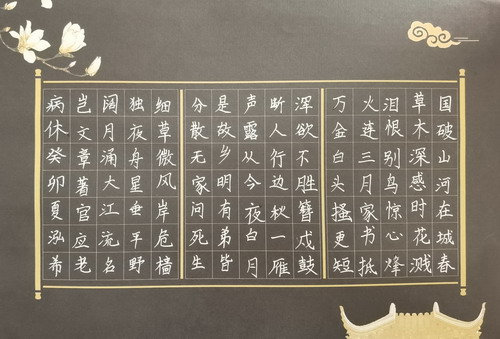 国破山河在城春
草木深感时花溅
泪恨别鸟惊心烽
火连三月家书抵
万金白头搔更短
浑欲不胜簪戍鼓
断人行边秋一雁
声露从今夜白月
是故乡明有弟皆
分散无家问死生
细草微风岸危樯
独夜舟星垂平野
阔月涌大江流名
岂文章著官应老
病休癸卯夏泓希